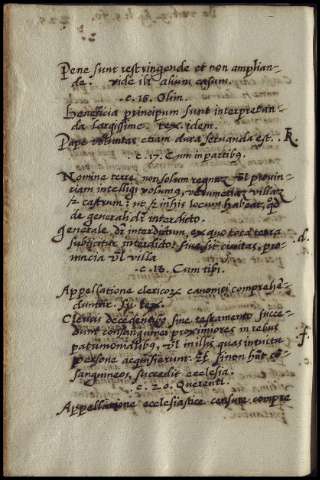 Pene sunt restringende et non amplian-
de. vide ibi alium casum.
.c. 16. Olim.
Beneficia principum sunt interpretan-
da largissime. tex. idem.
Pape voluntas etiam dura servanda est. .
.c. 17. Cum in partibꝯ.
Nomine terre non solum regnum vel provin-
ciam intelligi volumꝯ, verum etiam villas
et castrum: ut et in his locum habeat, qd
de generali dr interdicto.
generale dr interdictum, ex quo tota terra
subijcitur interdicto: sive sit civitas, pro- .d.
vincia vel villa
.c. 18. Cum tibi.
Appellatione clericorum canonici comprehē
duntur. Sic tex.
Clericis decedentibꝯ sine testamento succe-
dunt consanguinei proximiores in rebus
patrimonialibꝯ, vel in illis quas intuitu
persone acquisierunt. Et si non hnt co-
sanguineos, succedit ecclesia.
c. 20. Querenti.
Appellatione ecclesiastice censure compre